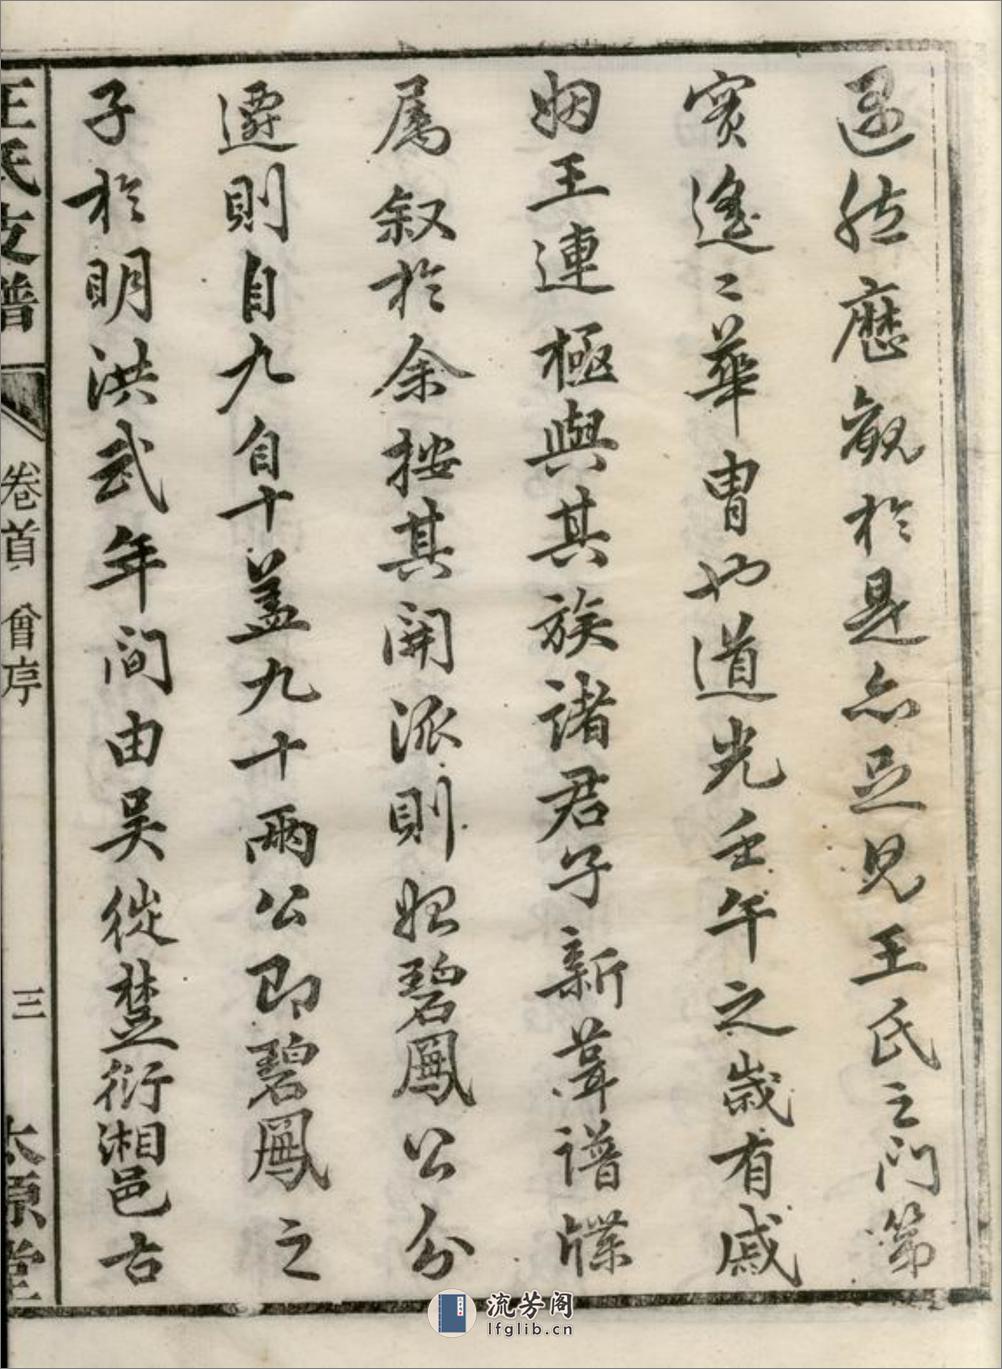 遥然歷觀於是亦足見王氏之門第
實遙〻華冑也道光壬午之歲有戚
姻王連極與其族諸君子新葺譜牒
屬叙於余按其開派則始碧鳳公分
遷則自九自十蓋九十兩公即碧鳳之
子於明洪武年间由吴從楚衍湘邑古
王氏支譜
卷首 曾序
三
太原堂
流芳阁
lfglib.cn